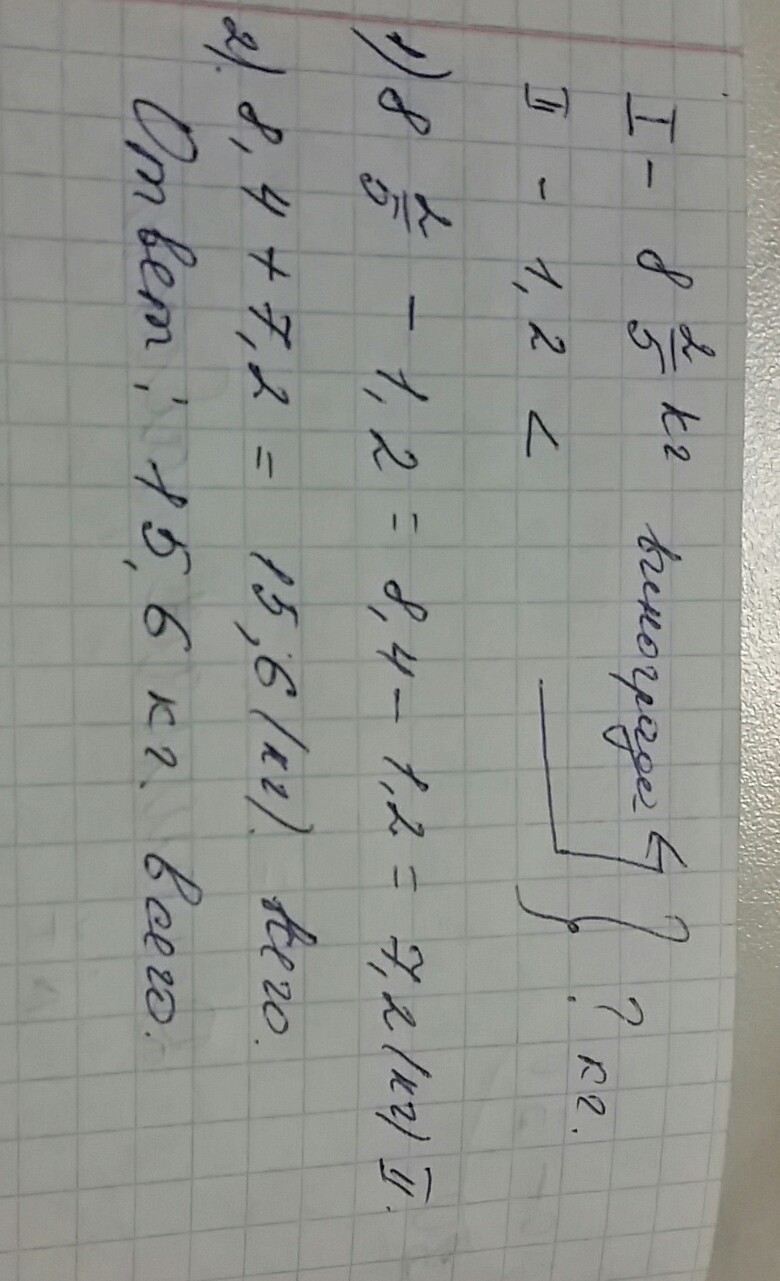 I - 8 2/5 кг винограде ?
II - 1,2 < } ? кг.
1) 8 2/5 - 1,2 = 8,4 - 1,2 = 7,2 (кг) II.
2). 8,4 + 7,2 = 15,6 (кг). всего.
Ответ: 15,6 кг. всего.